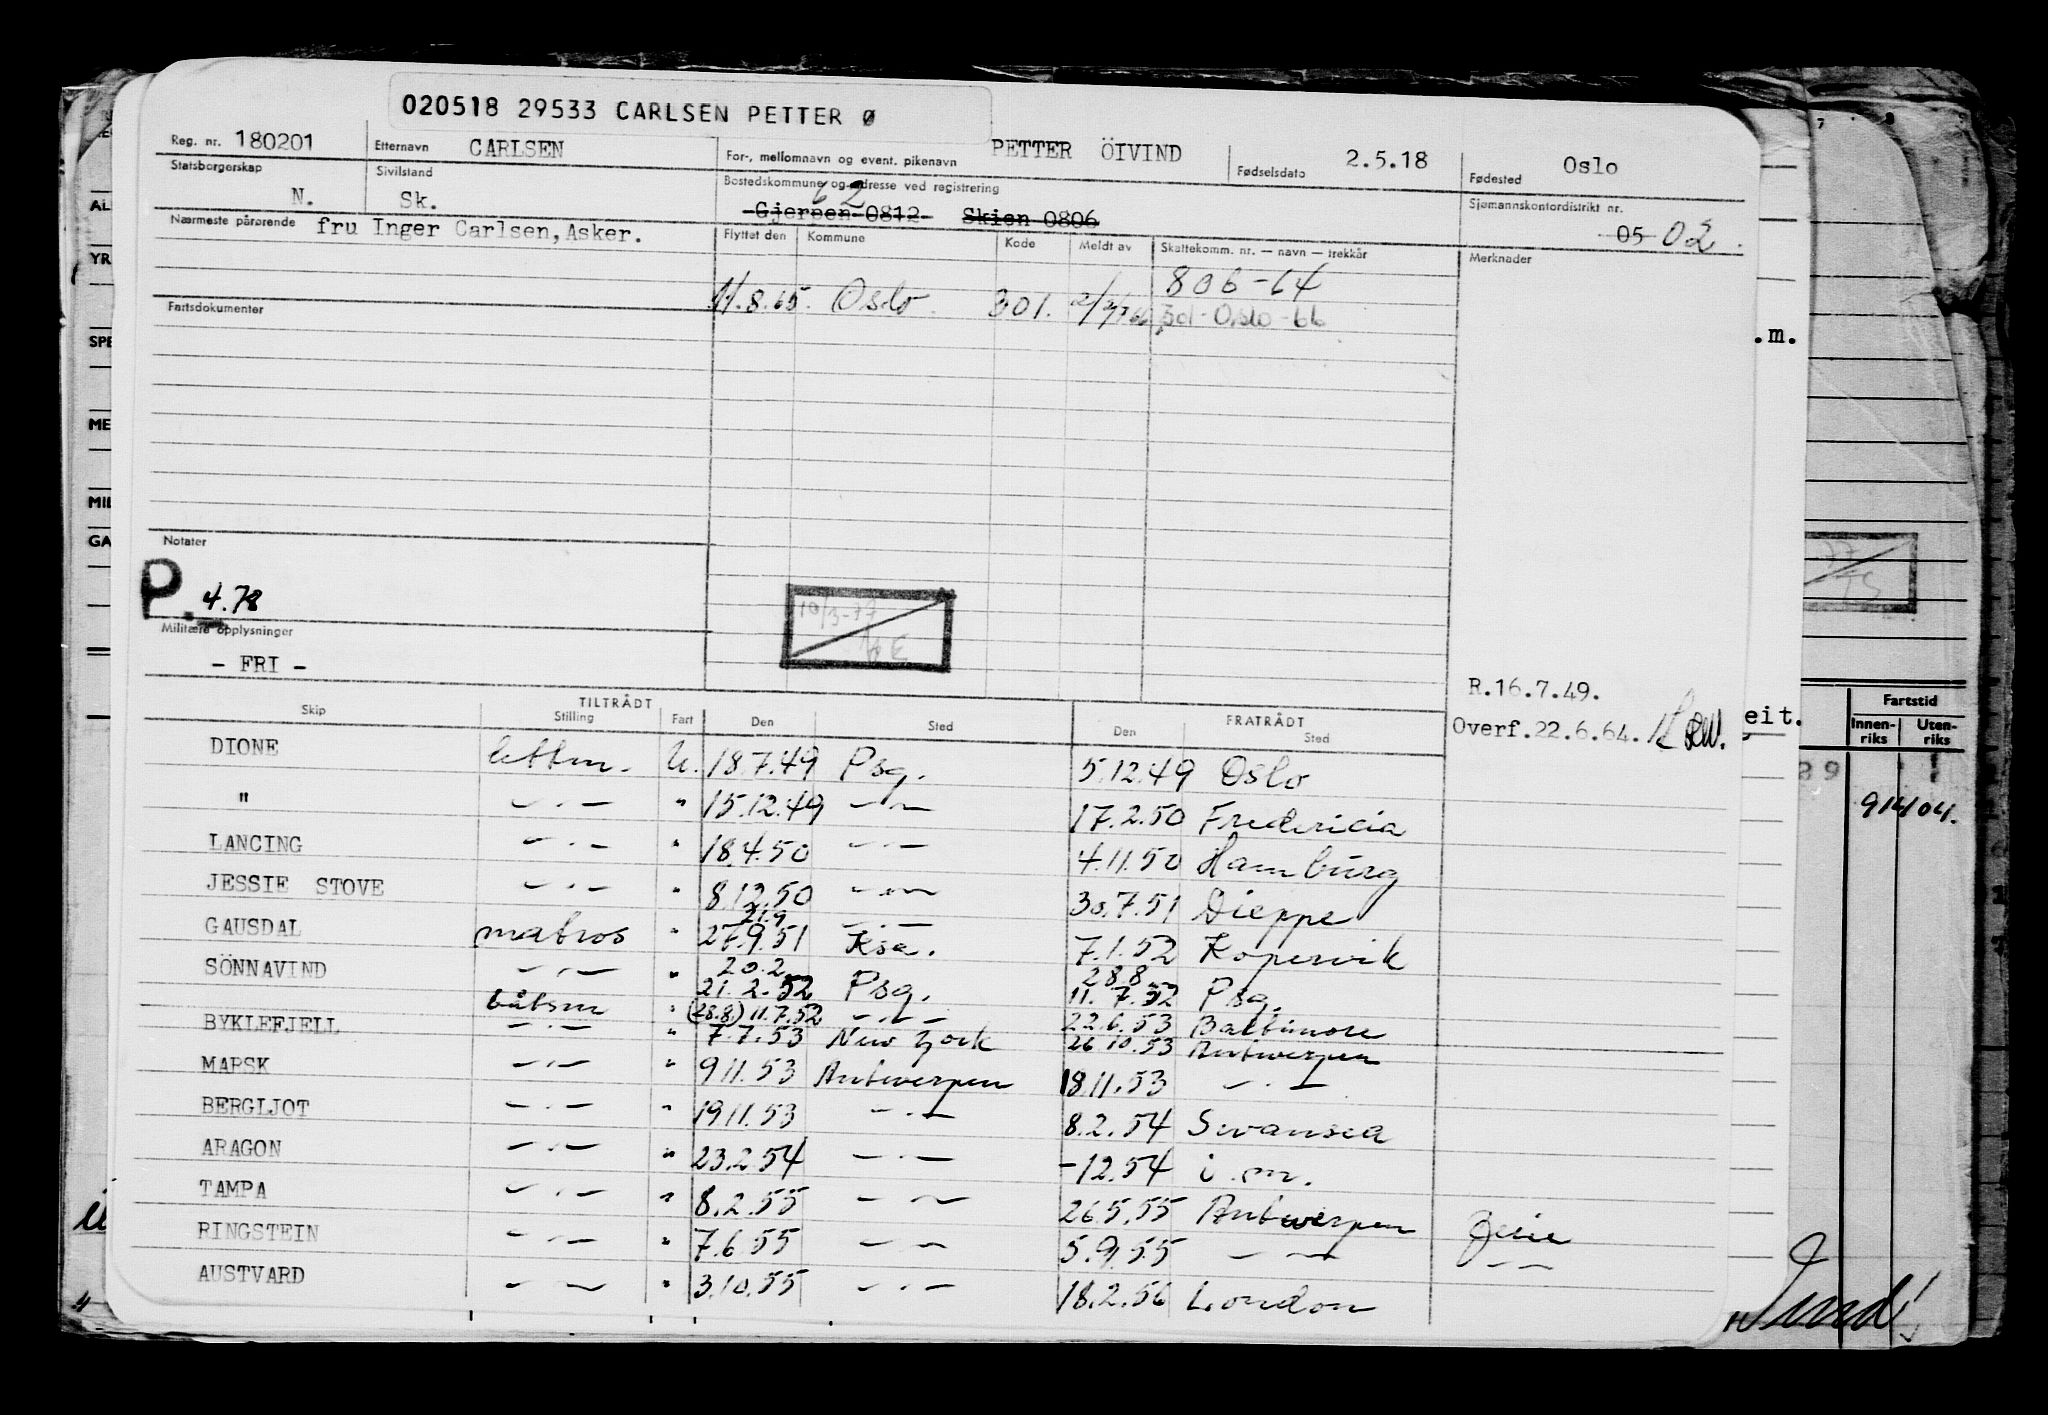 020518 29533 CARLSEN PETTER Ø
Reg. nr. 180201 Etternavn CARLSEN For-, mellomnavn og event. pikenavn PETTER ÖIVIND Fødselsdato 2.5.18 Fødested Oslo
Statsborgerskap N. Sivilstand Sk. Bostedskommune og adresse ved registrering Gjerpen 0812 Skien 0806 Sjømannskontordistrikt nr. 05 02.
62
Nærmeste pårørende fru Inger Carlsen, Asker.
Flyttet den Kommune Kode Meldt av Skattekomm. nr. — navn — trekkår Merknader
806-64
11.8.65. Oslo. 301. 301-Oslo-66
Fartsdokumenter
Notater
P. 4.78
10/3-77
Militære opplysninger
- FRI -
R.16.7.49.
Overf.22.6.64.
TILTRÅDT FRATRÅDT
Skip Stilling Fart Den Sted Den Sted
DIONE lettm. U. 18.7.49 Psg. 5.12.49 Oslo
" — . — " 15.12.49 — " — 17.2.50 Fredericia
LANCING — . — " 18.4.50 — . — 4.11.50 Hamburg
JESSIE STOVE — . — " 8.12.50 — " — 30.7.51 Dieppe
21.9
GAUSDAL matros " 27.9.51 Ksa. 7.1.52 Kopervik
20.2 28.8
SÖNNAVIND — . — " 21.2.52 Psg. 11.7.52 Psg.
båtsm " (28.8.) 11.7.52 — . — 22.6.53 Baltimore
BYKLEFJELL — . — " 7.7.53 New York 26.10.53 Antwerpen
MARSK — . — " 9.11.53 Antwerpen 18.11.53 — . —
BERGLJOT — . — " 19.11.53 — . — 8.2.54 Swansea
ARAGON — . — " 23.2.54 — . — -12.54 i.m.
TAMPA — . — " 8.2.55 — . — 26.5.55 Antwerpen
RINGSTEIN — . — " 7.6.55 — . — 5.9.55 — " —
AUSTVARD — . — " 3.10.55 — . — 18.2.56 London
AL
YR
SPE
ME
MIL
GA
.m.
eit.
Fartstid
Innen-riks Uten-riks